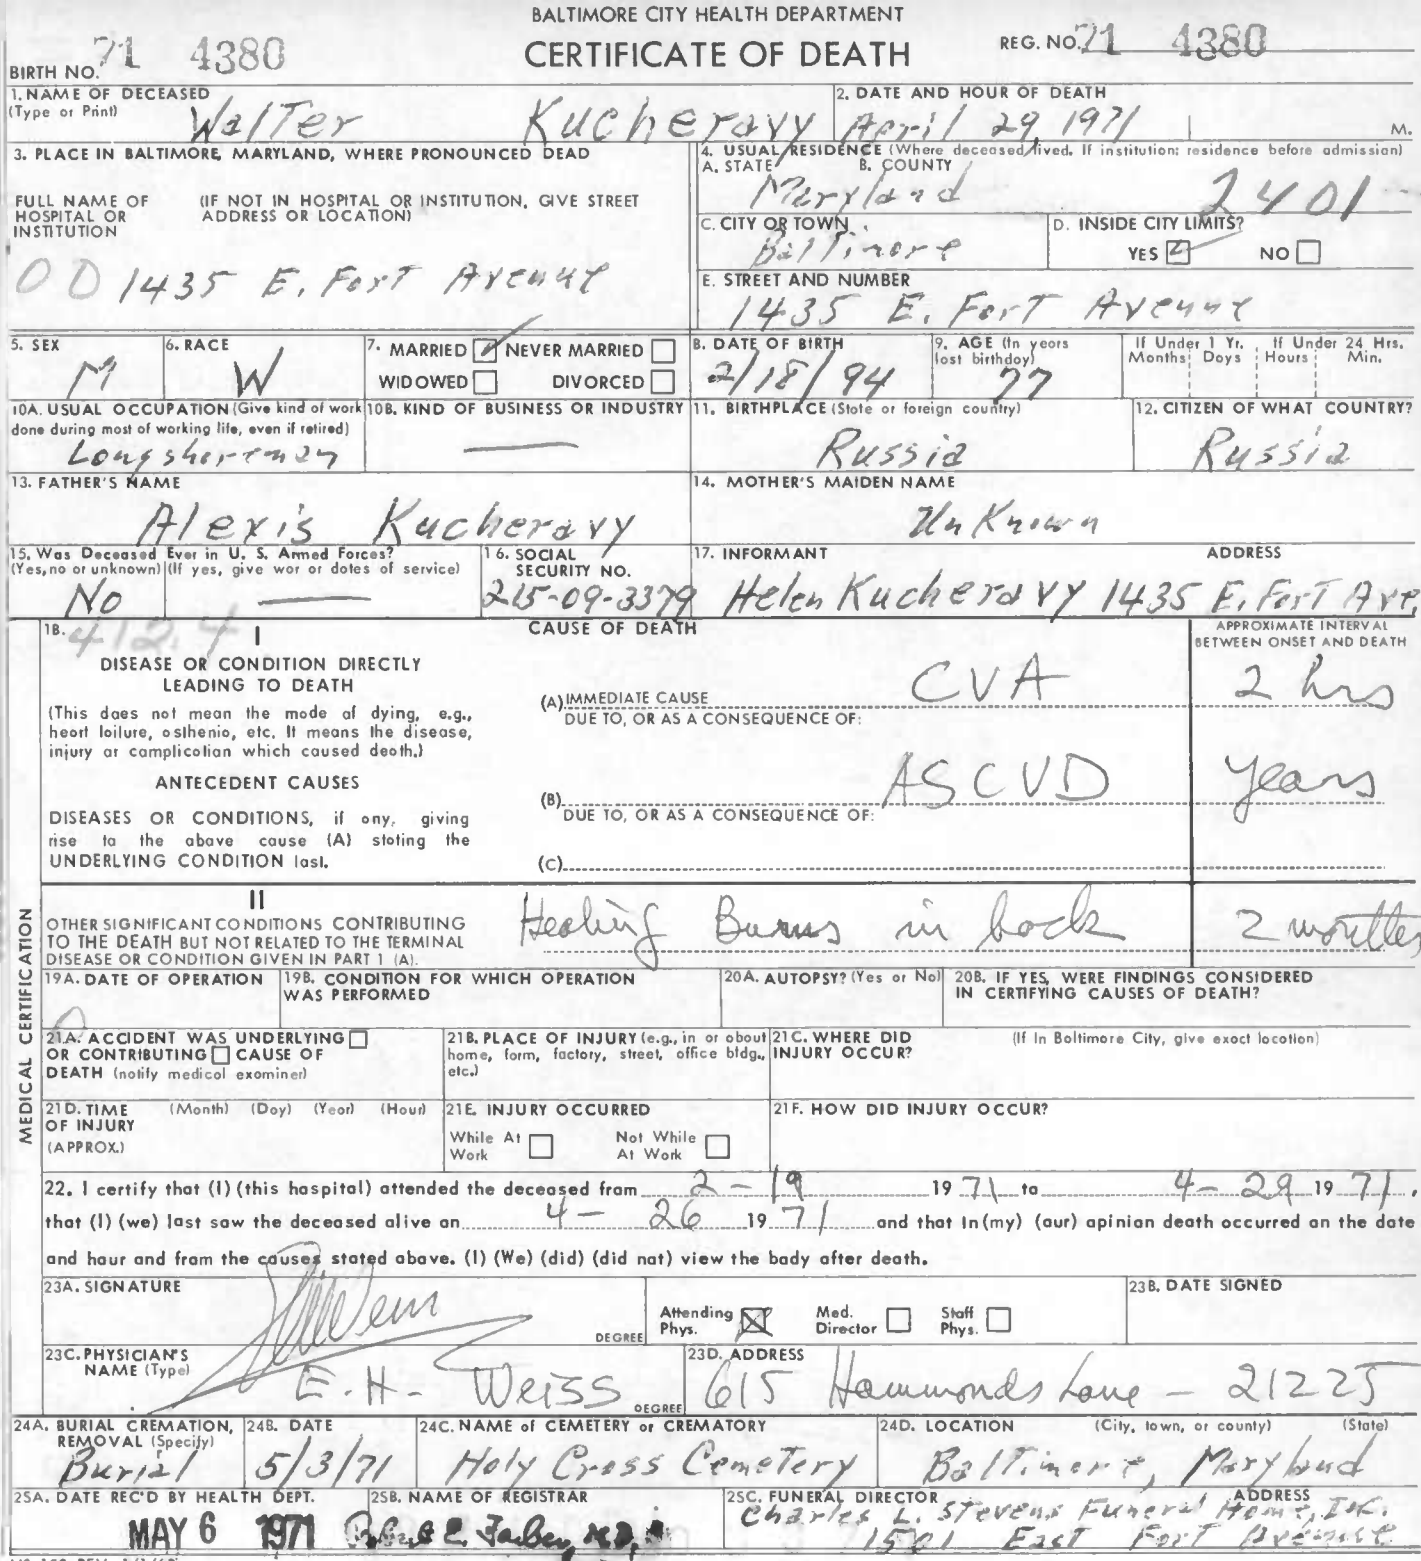 BALTIMORE CITY HEALTH DEPARTMENT
CERTIFICATE OF DEATH
BIRTH NO. 71 4380
REG. NO. 71 4380
1. NAME OF DECEASED
(Type or Print)
Walter Kucheravy
2. DATE AND HOUR OF DEATH
April 29, 1971 M.
3. PLACE IN BALTIMORE, MARYLAND, WHERE PRONOUNCED DEAD
FULL NAME OF HOSPITAL OR INSTITUTION
(IF NOT IN HOSPITAL OR INSTITUTION, GIVE STREET ADDRESS OR LOCATION)
00 1435 E. Fort Avenue
4. USUAL RESIDENCE (Where deceased lived. If institution: residence before admission)
A. STATE B. COUNTY
Maryland 2401
C. CITY OR TOWN
Baltimore
D. INSIDE CITY LIMITS?
YES NO
E. STREET AND NUMBER
1435 E. Fort Avenue
5. SEX
M
6. RACE
W
7. MARRIED NEVER MARRIED
WIDOWED DIVORCED
8. DATE OF BIRTH
2/18/94
9. AGE (In years last birthday)
77
If Under 1 Yr. If Under 24 Hrs.
Months Days Hours Min.
10A. USUAL OCCUPATION (Give kind of work done during most of working life, even if retired)
Longshoreman
10B. KIND OF BUSINESS OR INDUSTRY
11. BIRTHPLACE (State or foreign country)
Russia
12. CITIZEN OF WHAT COUNTRY?
Russia
13. FATHER'S NAME
Alexis Kucheravy
14. MOTHER'S MAIDEN NAME
UnKnown
15. Was Deceased Ever in U. S. Armed Forces?
(Yes, no or unknown) (If yes, give war or dates of service)
No
16. SOCIAL SECURITY NO.
215-09-3379
17. INFORMANT ADDRESS
Helen Kucheravy 1435 E. Fort Ave.
18. 412.4
I
DISEASE OR CONDITION DIRECTLY
LEADING TO DEATH
(This does not mean the mode of dying, e.g.,
heart failure, asthenia, etc. It means the disease,
injury or complication which caused death.)
ANTECEDENT CAUSES
DISEASES OR CONDITIONS, if any, giving
rise to the above cause (A) stating the
UNDERLYING CONDITION last.
CAUSE OF DEATH
APPROXIMATE INTERVAL
BETWEEN ONSET AND DEATH
(A) IMMEDIATE CAUSE CVA 2 hrs
DUE TO, OR AS A CONSEQUENCE OF:
(B) ASCVD years
DUE TO, OR AS A CONSEQUENCE OF:
(C)
MEDICAL CERTIFICATION
II
OTHER SIGNIFICANT CONDITIONS CONTRIBUTING
TO THE DEATH BUT NOT RELATED TO THE TERMINAL
DISEASE OR CONDITION GIVEN IN PART 1 (A).
Healing Burns in back 2 months
19A. DATE OF OPERATION
19B. CONDITION FOR WHICH OPERATION WAS PERFORMED
20A. AUTOPSY? (Yes or No)
20B. IF YES, WERE FINDINGS CONSIDERED IN CERTIFYING CAUSES OF DEATH?
21A. ACCIDENT WAS UNDERLYING
OR CONTRIBUTING CAUSE OF
DEATH (notify medical examiner)
21B. PLACE OF INJURY (e.g., in or about
home, farm, factory, street, office bldg.,
etc.)
21C. WHERE DID INJURY OCCUR?
(If In Baltimore City, give exact location)
21D. TIME OF INJURY (APPROX.)
(Month) (Day) (Year) (Hour)
21E. INJURY OCCURRED
While At Work Not While At Work
21F. HOW DID INJURY OCCUR?
22. I certify that (I) (this hospital) attended the deceased from 2-19 1971 to 4-29 1971,
that (I) (we) last saw the deceased alive on 4-26 1971 and that in (my) (our) opinion death occurred on the date
and hour and from the causes stated above. (I) (We) (did) (did not) view the body after death.
23A. SIGNATURE
DEGREE
Attending Phys. Med. Director Staff Phys.
23B. DATE SIGNED
23C. PHYSICIAN'S NAME (Type)
E. H. Weiss
DEGREE
23D. ADDRESS
615 Hammonds Lane - 21225
24A. BURIAL CREMATION, REMOVAL (Specify)
Burial
24B. DATE
5/3/71
24C. NAME of CEMETERY or CREMATORY
Holy Cross Cemetery
24D. LOCATION (City, town, or county) (State)
Baltimore, Maryland
25A. DATE REC'D BY HEALTH DEPT.
MAY 6 1971
25B. NAME OF REGISTRAR
Robert E. Farber, M.D.
25C. FUNERAL DIRECTOR ADDRESS
Charles L. Stevens Funeral Home, Inc.
1501 East Fort Avenue